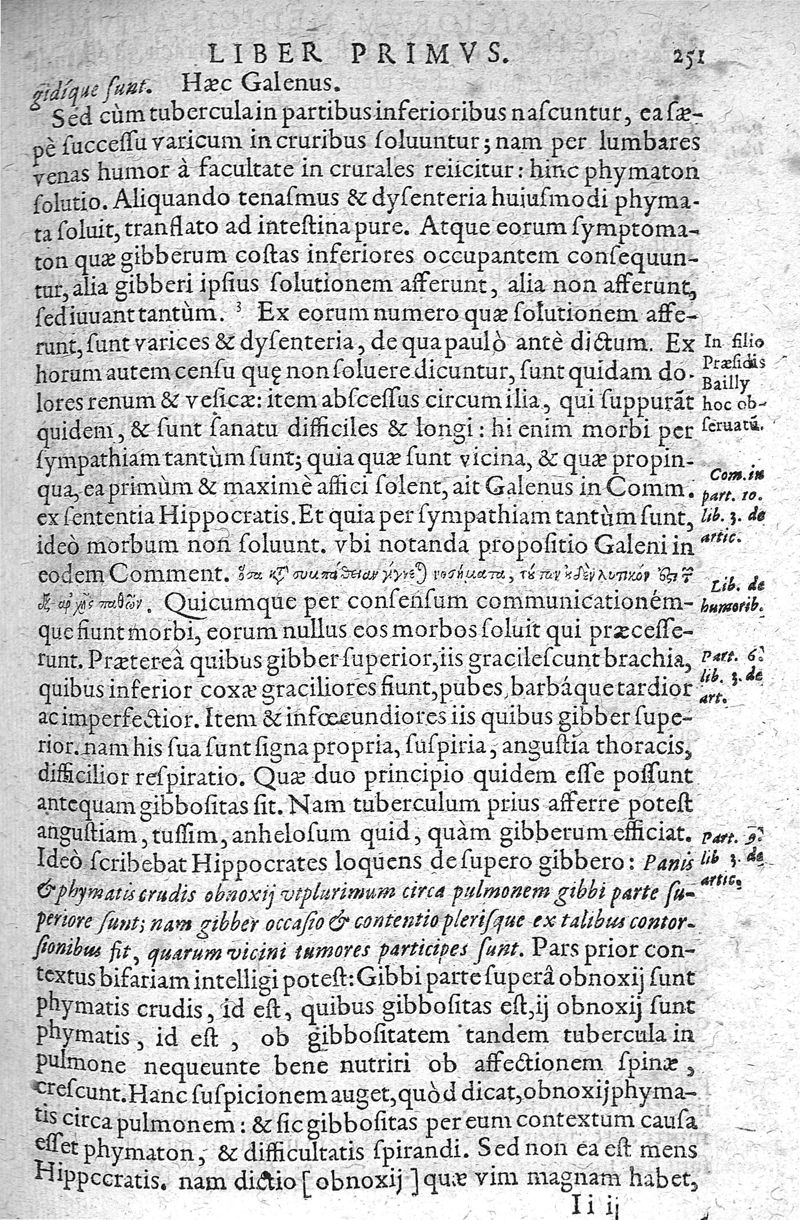 LIBER PRIMVS. 251
gidíque ſunt. Hæc Galenus.
Sed cùm tubercula in partibus inferioribus naſcuntur, ea ſæ-
pè ſucceſſu varicum in cruribus ſoluuntur; nam per lumbares
venas humor à facultate in crurales reiicitur: hinc phymaton
ſolutio. Aliquando tenaſmus & dyſenteria huiuſmodi phyma-
ta ſoluit, tranſlato ad inteſtina pure. Atque eorum ſymptoma-
ton quæ gibberum coſtas inferiores occupantem conſequun-
tur, alia gibberi ipſius ſolutionem afferunt, alia non afferunt,
ſed iuuant tantùm. ³ Ex eorum numero quæ ſolutionem affe-
runt, ſunt varices & dyſenteria, de qua paulò antè dictum. Ex
horum autem cenſu quę non ſoluere dicuntur, ſunt quidam do-
lores renum & veſicæ: item abſceſſus circum ilia, qui ſuppurāt
quidem, & ſunt ſanatu difficiles & longi: hi enim morbi per
ſympathiam tantùm ſunt; quia quæ ſunt vicina, & quæ propin-
qua, ea primùm & maximè affici ſolent, ait Galenus in Comm.
ex ſententia Hippocratis. Et quia per ſympathiam tantùm ſunt,
ideò morbum non ſoluunt. vbi notanda propoſitio Galeni in
eodem Comment.
Quicumque per conſenſum communicationém-
que fiunt morbi, eorum nullus eos morbos ſoluit qui præceſſe-
runt. Prætereà quibus gibber ſuperior, iis gracileſcunt brachia,
quibus inferior coxæ graciliores fiunt, pubes, barbáque tardior
ac imperfectior. Item & infœcundiores iis quibus gibber ſupe-
rior. nam his ſua ſunt ſigna propria, ſuſpiria, anguſtia thoracis,
difficilior reſpiratio. Quæ duo principio quidem eſſe poſſunt
antequam gibboſitas ſit. Nam tuberculum prius afferre poteſt
anguſtiam, tuſſim, anheloſum quid, quàm gibberum efficiat.
Ideò ſcribebat Hippocrates loquens de ſupero gibbero: Panis
& phymatis crudis obnoxij vt plurimum circa pulmonem gibbi parte ſu-
periore ſunt; nam gibber occaſio & contentio pleriſque ex talibus contor-
ſionibus fit, quarum vicini tumores participes ſunt. Pars prior con-
textus bifariam intelligi poteſt: Gibbi parte ſuperâ obnoxij ſunt
phymatis crudis, id eſt, quibus gibboſitas eſt, ij obnoxij ſunt
phymatis, id eſt, ob gibboſitatem tandem tubercula in
pulmone nequeunte bene nutriri ob affectionem ſpinæ,
creſcunt. Hanc ſuſpicionem auget, quòd dicat, obnoxij phyma-
tis circa pulmonem: & ſic gibboſitas per eum contextum cauſa
eſſet phymaton, & difficultatis ſpirandi. Sed non ea eſt mens
Hippocratis. nam dictio [obnoxij] quæ vim magnam habet,
Ii ij
In filio
Præſidis
Bailly
hoc ob-
ſeruatū.
Com. in
part. 10.
lib. 3. de
artic.
Lib. de
humorib.
Part. 6.
lib. 3. de
art.
Part. 9.
lib 3. de
artic.